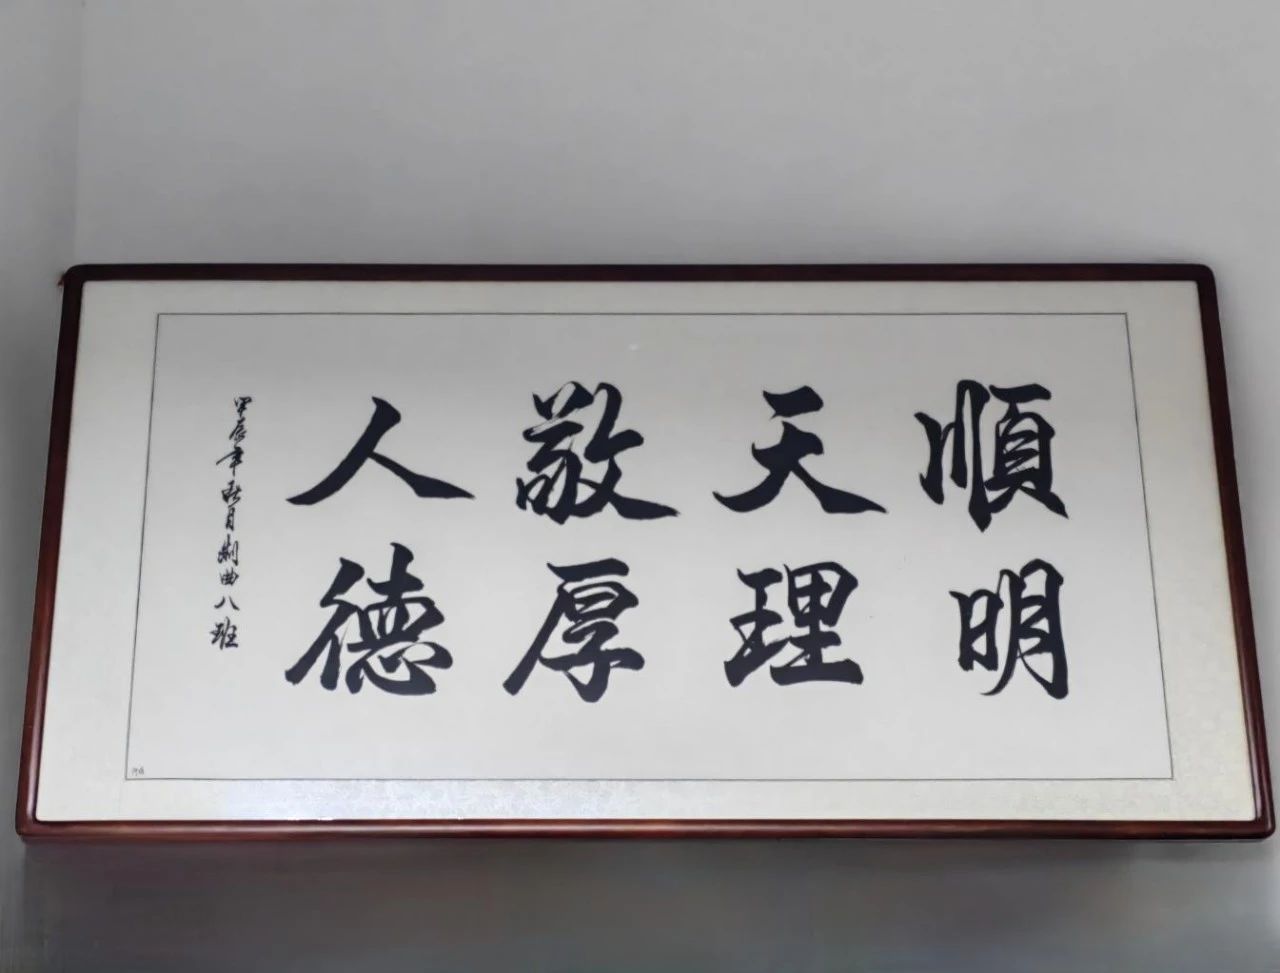 順明
天理
敬厚
人德
甲辰年秋月制曲八班